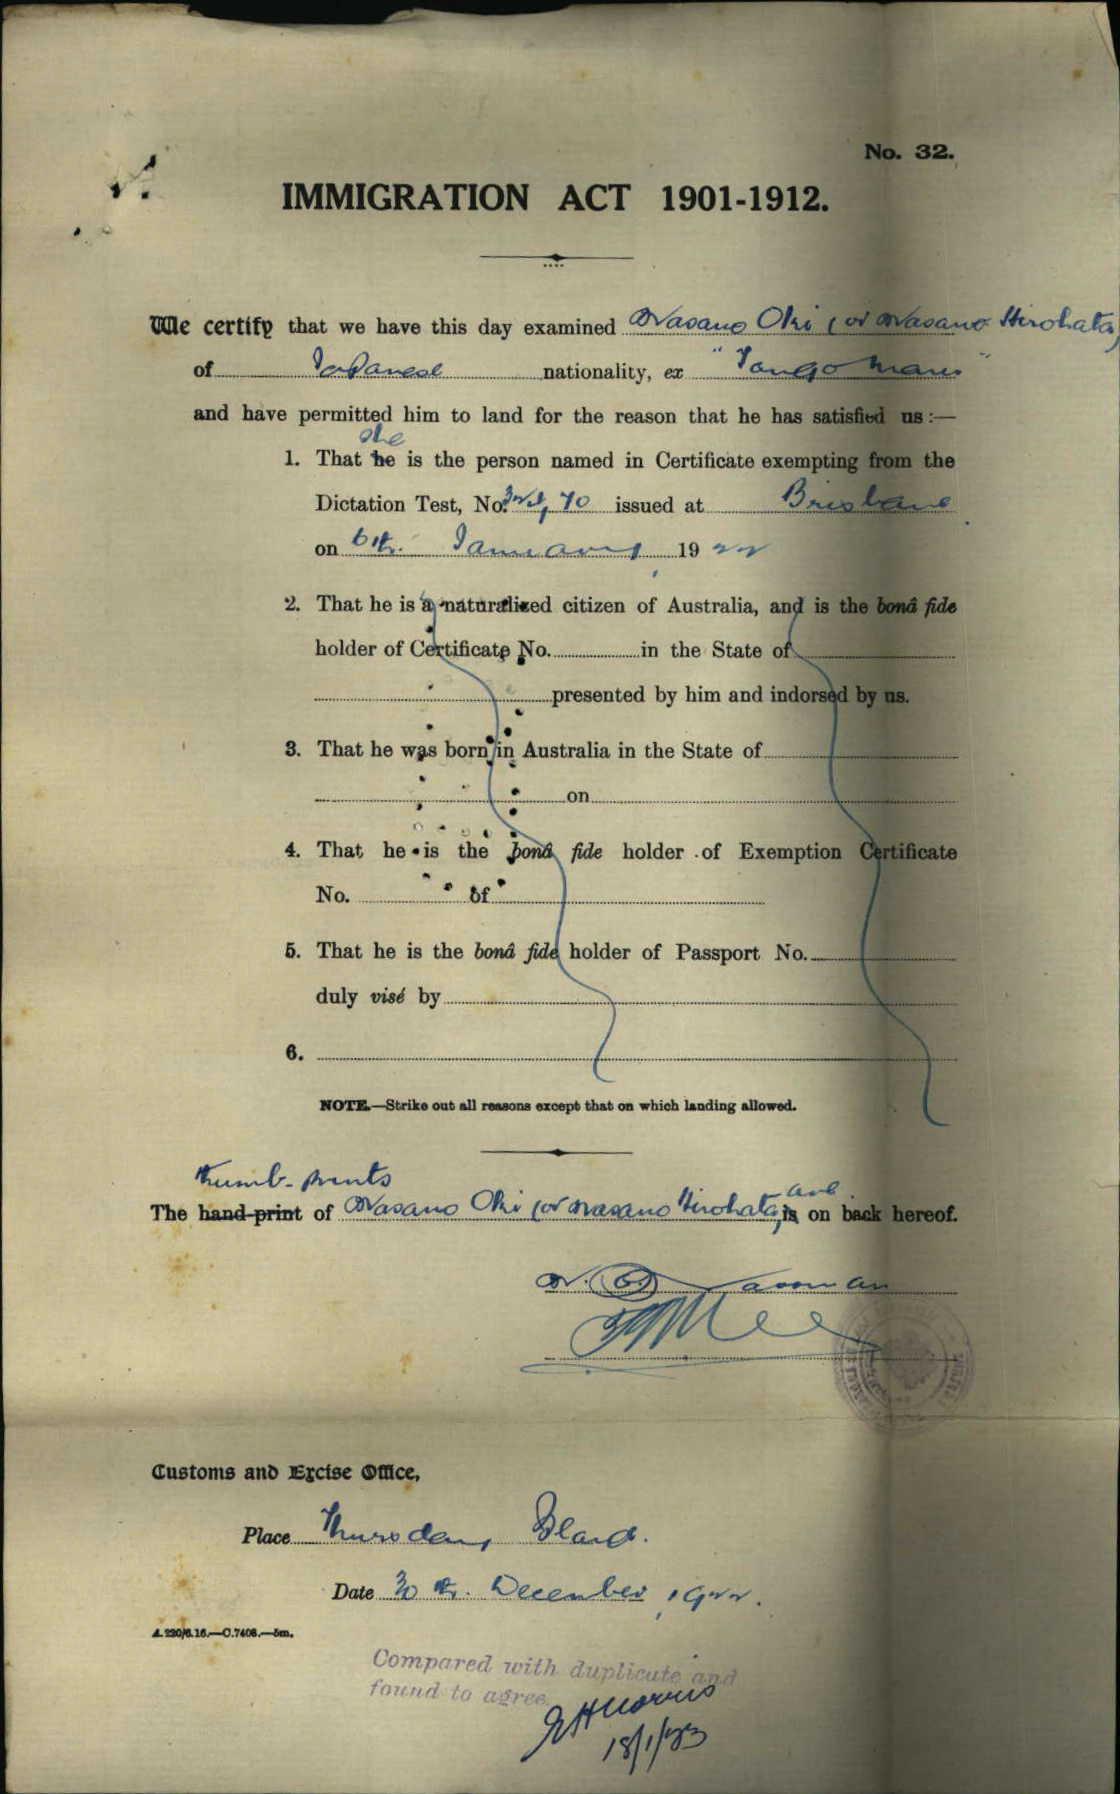 No. 32.
IMMIGRATION ACT 1901-1912.
We certify that we have this day examined Wasano Oki (or Wasano Hirohata)
of Japanese nationality, ex "Tango Maru"
and have permitted him to land for the reason that he has satisfied us :—
she
1. That he is the person named in Certificate exempting from the
Dictation Test, No. 70 issued at Brisbane
on 6th. January 1922
2. That he is a naturalized citizen of Australia, and is the bonâ fide
holder of Certificate No. in the State of
presented by him and indorsed by us.
3. That he was born in Australia in the State of
on
4. That he is the bonâ fide holder of Exemption Certificate
No. of
5. That he is the bonâ fide holder of Passport No.
duly visé by
6.
NOTE.—Strike out all reasons except that on which landing allowed.
thumb-prints are
The hand-print of Wasano Oki (or Wasano Hirohata) is on back hereof.
Customs and Excise Office,
Place Thursday Island.
Date 30th. December, 1922.
A.220/6.16.—C.7408.—5m.
Compared with duplicate and
found to agree.
18/1/23